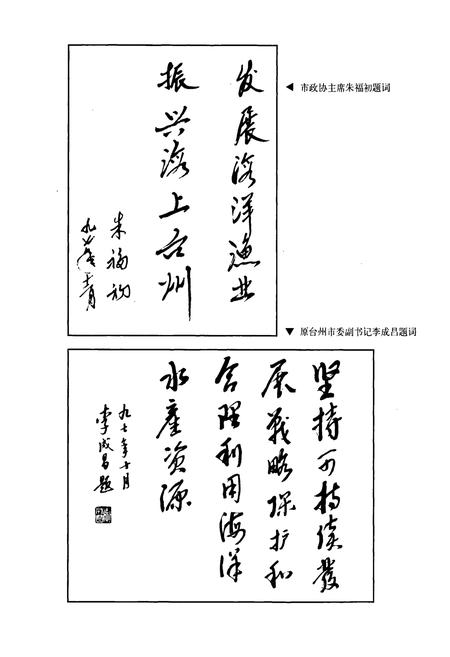 市政协主席朱福初题词
发展海洋渔业
振兴海上台州
朱福初
原台州市委副书记李成昌题词
坚持可持续發
展战略保护和
合理利用海洋
水產资源
九七年十月
李成昌题